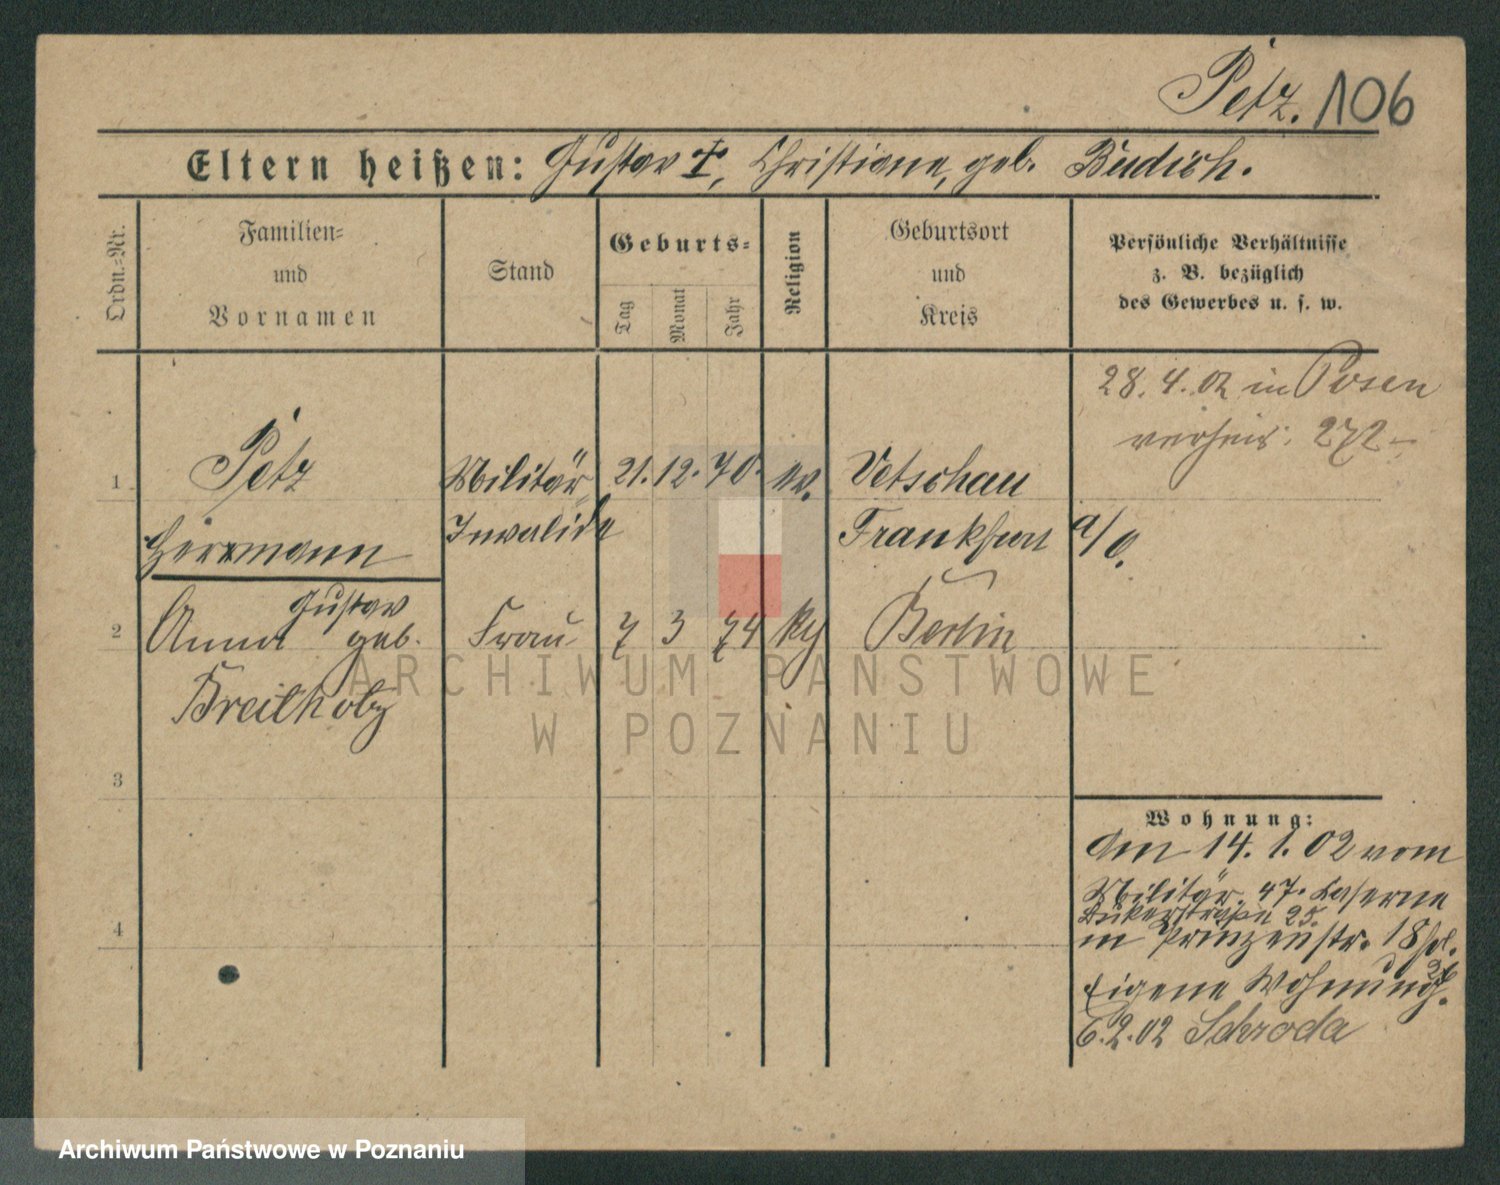 Petz. 106
Eltern heißen: Gustav †, Christiane, geb. Budich.
Ordn.-Nr.
Familien-
und
Vornamen
Stand
Geburts-
Tag
Monat
Jahr
Religion
Geburtsort
und
Kreis
Persönliche Verhältnisse
z. B. bezüglich
des Gewerbes u. s. w.
28. 4. 02 in Posen
verheir. 272
1 Petz Militär 21. 12. 70. ev. Vetschau
Herrmann Invalide Frankfurt a/O.
Gustav
2 Anna geb. Frau 7 3 74 Berlin
Breitholz
3
4
Wohnung:
Am 14. 1. 02 vom
Militär. 47. Kaserne
25.
in Prinzenstr. 18
Eigene Wohnung.
6.2.02 Schroda
ARCHIWUM PAŃSTWOWE
W POZNANIU
Archiwum Państwowe w Poznaniu